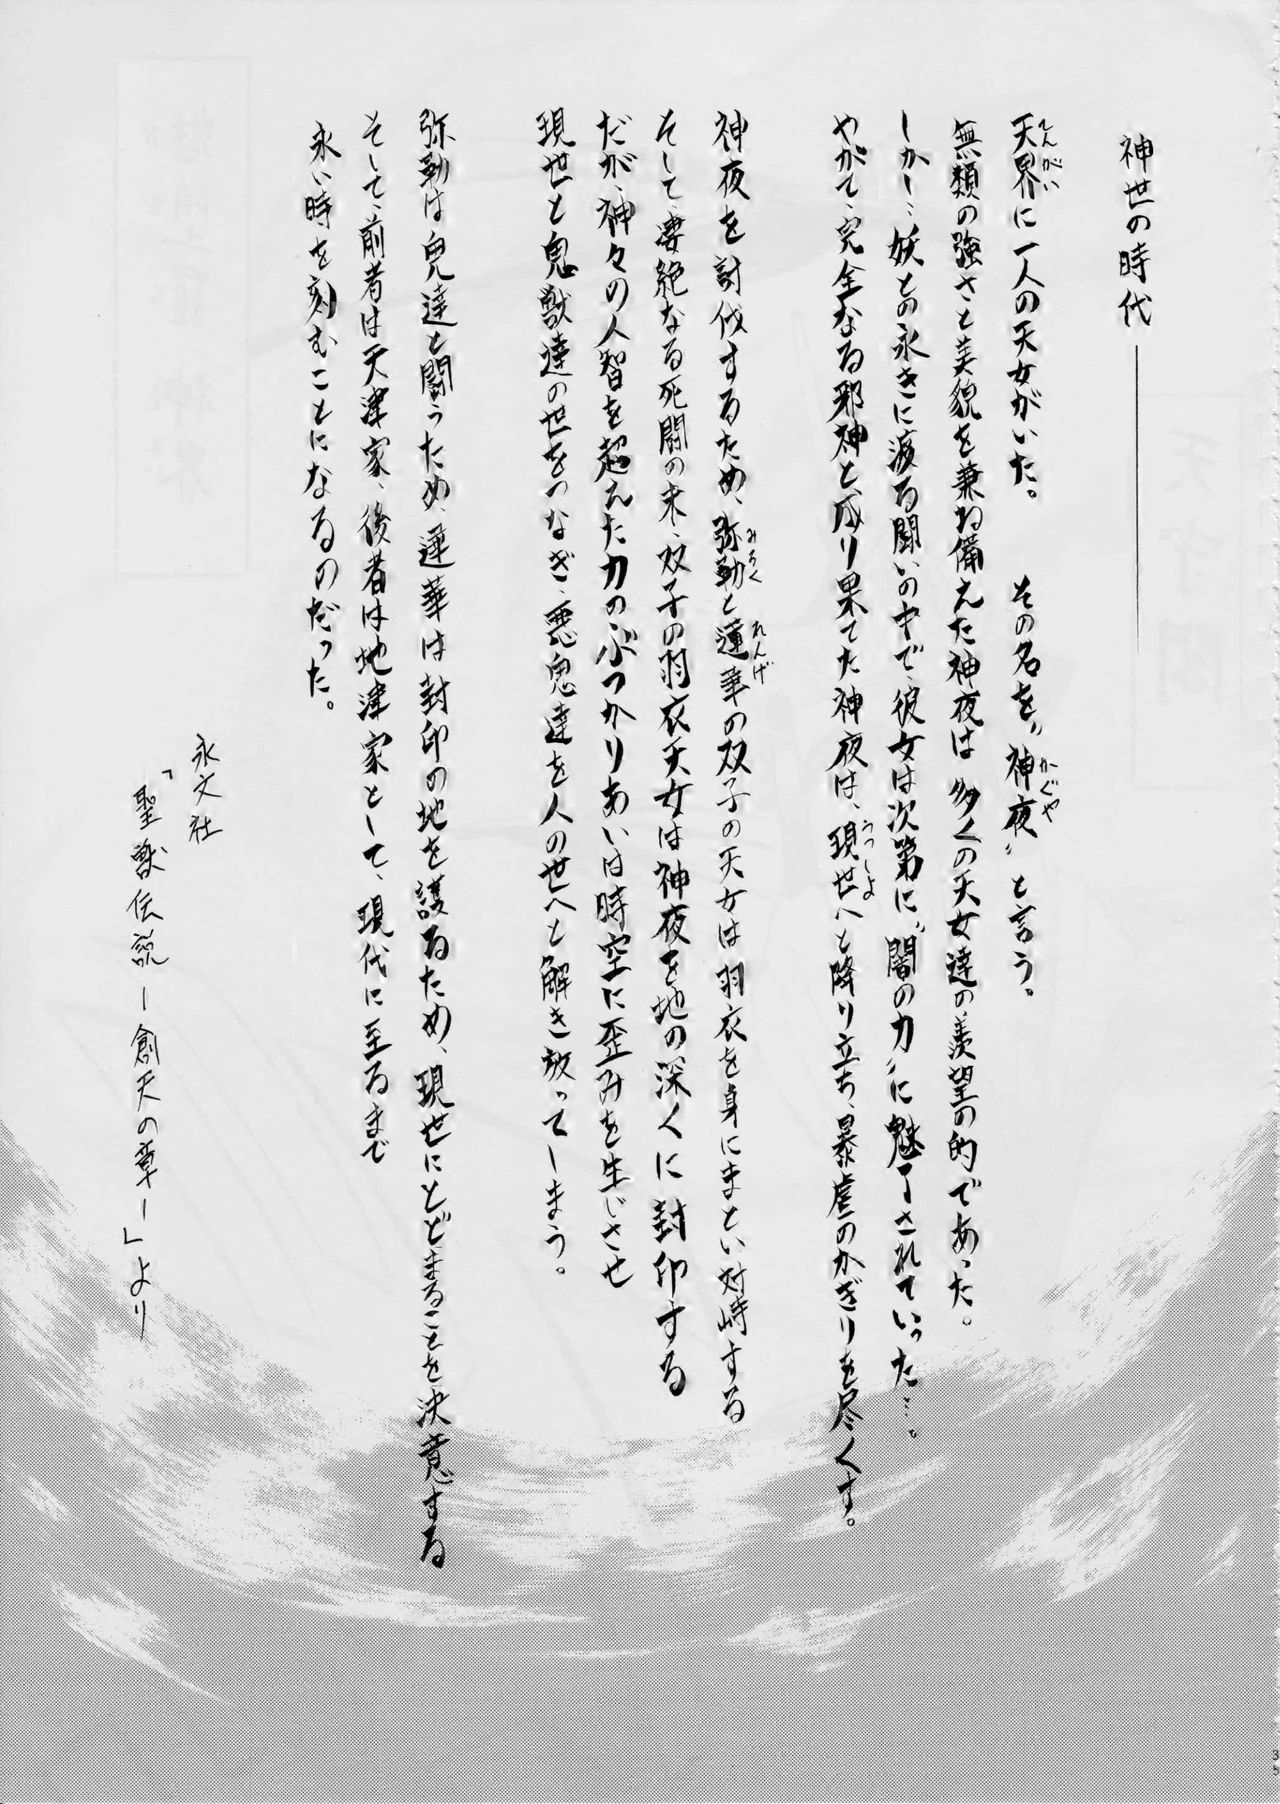 神世の時代――――――
天界に一人の天女がいた。　その名を〝神夜〟と言う。
無類の強さと美貌を兼ね備えた神夜は多くの天女達の羨望の的であった。
しかし…妖との永きに渡る闘いの中で、彼女は次第に〝闇の力〟に魅了されていった…。
やがて、完全なる邪神と成り果てた神夜は、現世へと降り立ち、暴虐のかぎりを尽くす。
神夜を討伐するため、弥勒と蓮華の双子の天女は羽衣を身にまとい対峙する
そして、凄絶なる死闘の末、双子の羽衣天女は神夜を地の深くに封印する
だが、神々の人智を超えた力のぶつかりあいは時空に歪みを生じさせ
現世と鬼獣達の世をつなぎ、悪鬼達を人の世へと解き放ってしまう。
弥勒は鬼達と闘うため、蓮華は封印の地を護るため、現世にとどまることを決意する
そして、前者は天津家、後者は地津家として、現代に至るまで
永い時を刻むことになるのだった。
永文社
「聖獣伝説ー創天の章ー」より
35